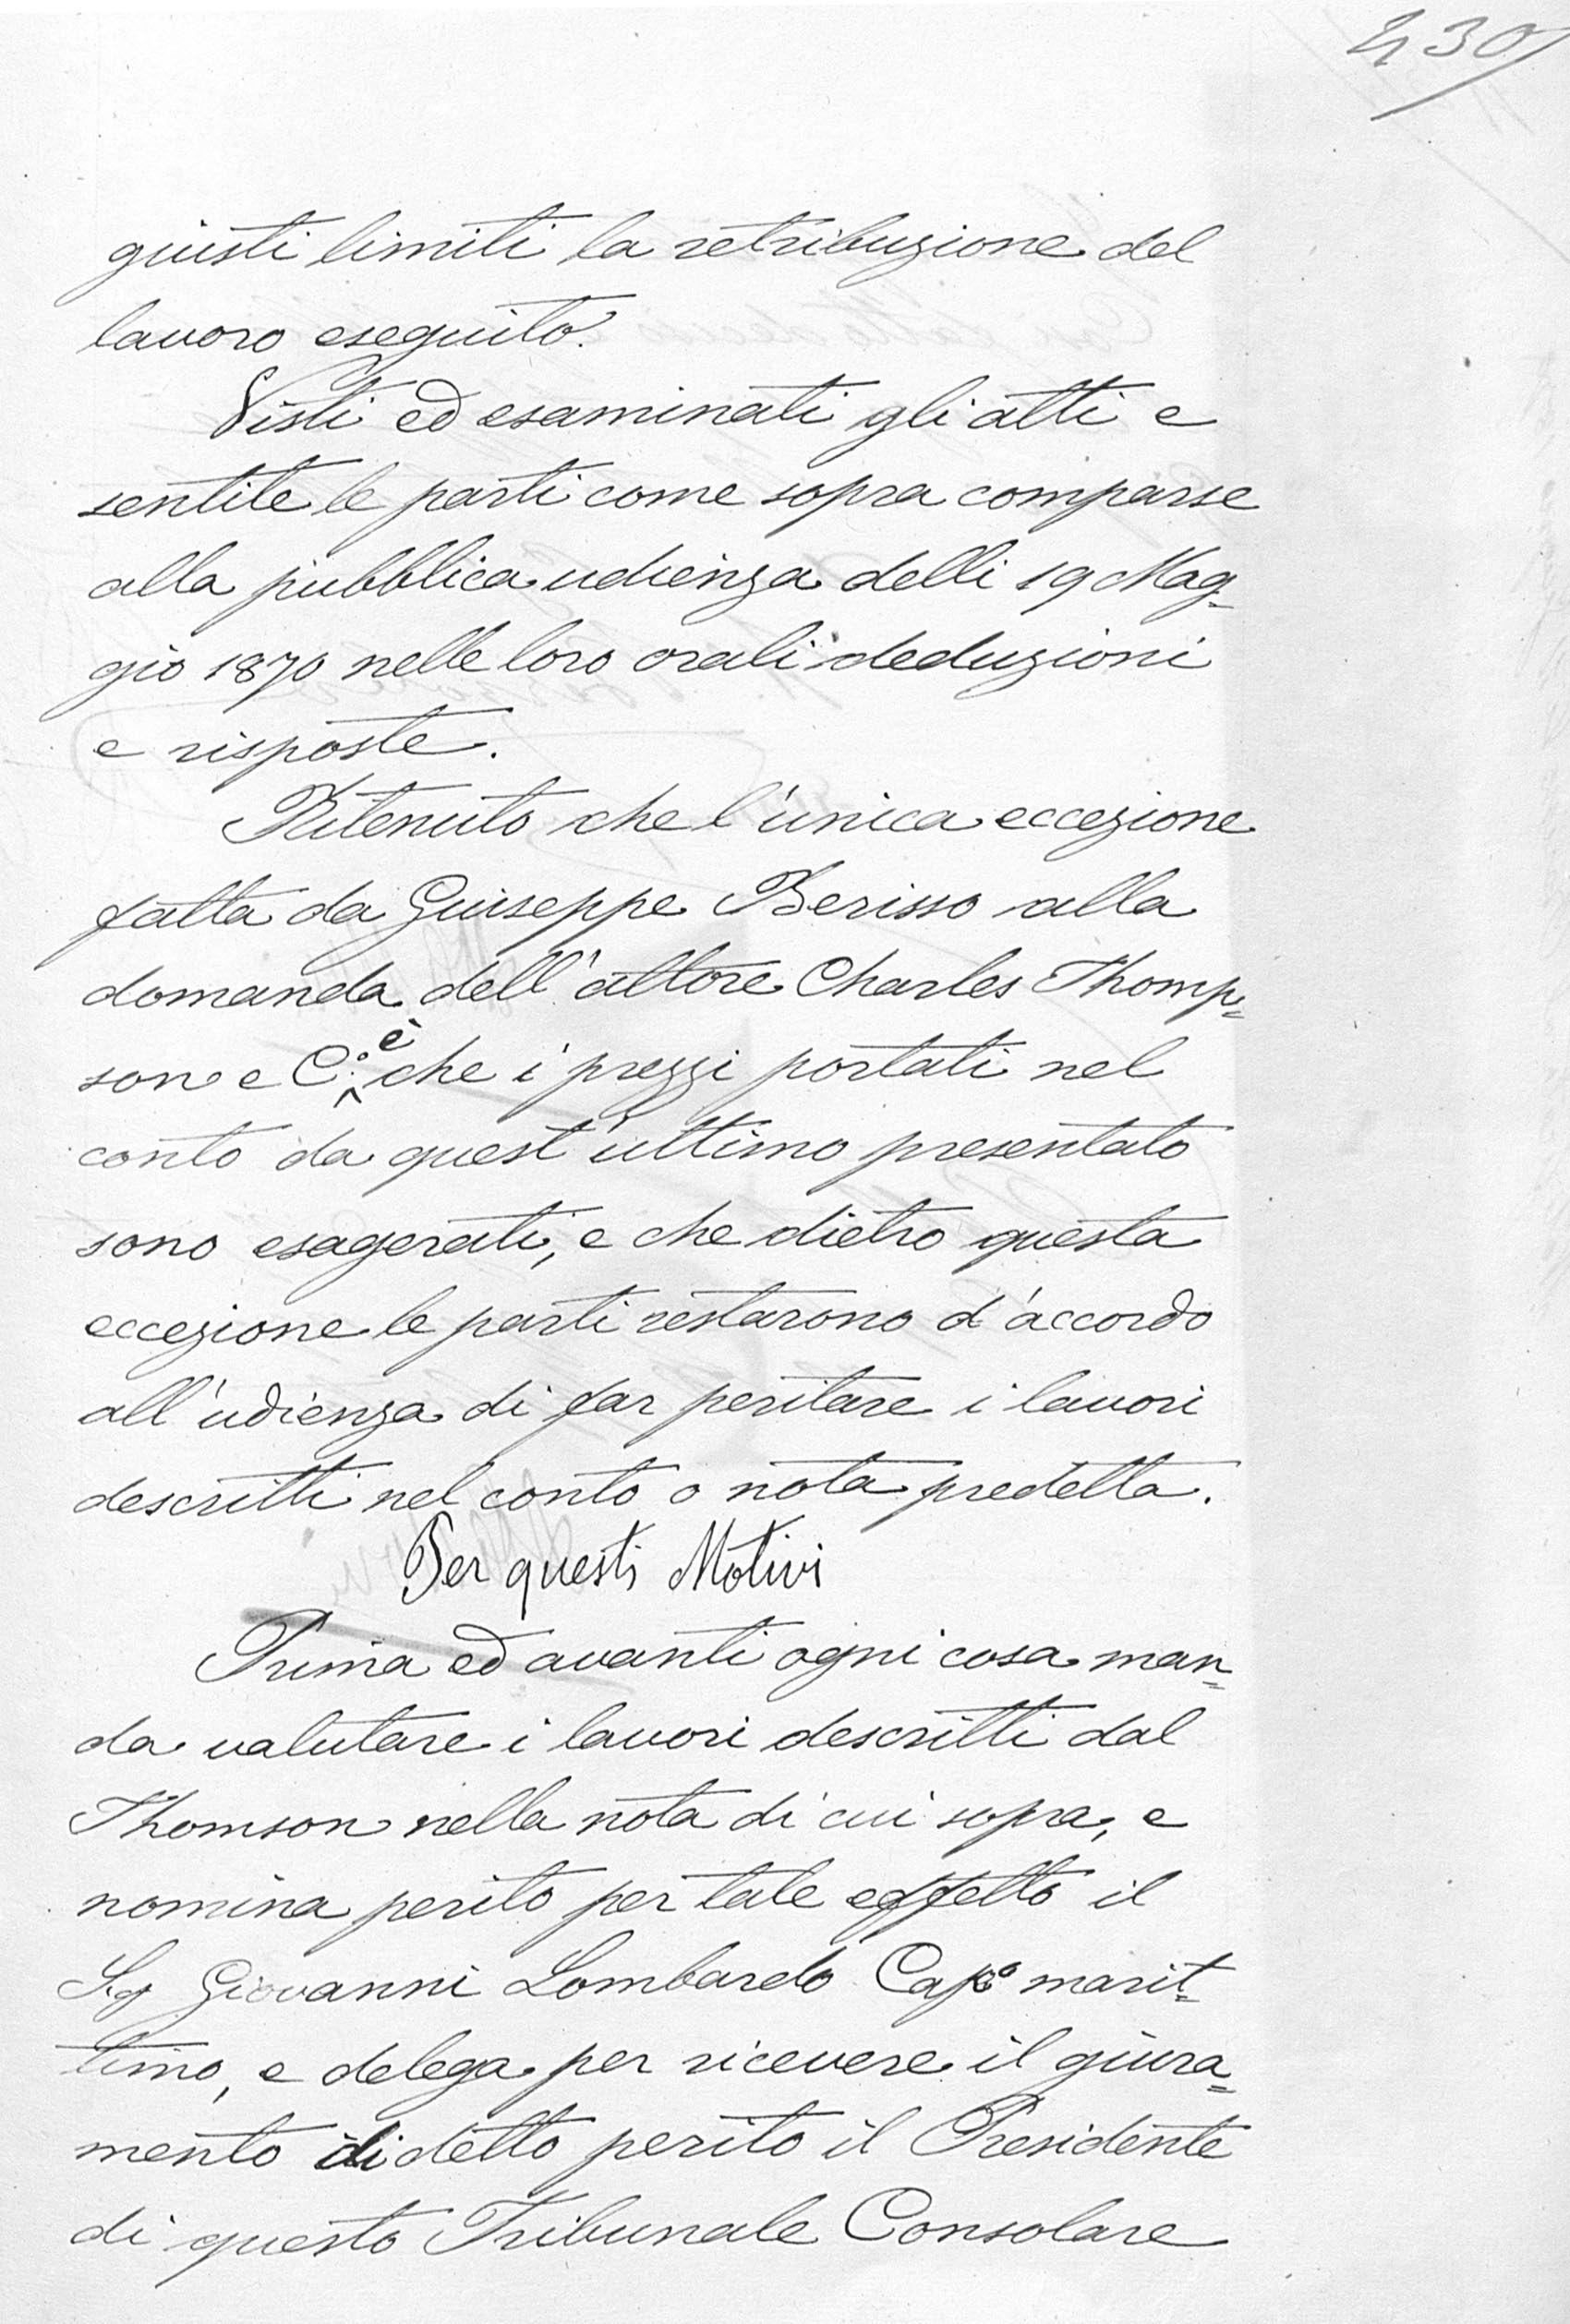 430
giusti limiti la retribuzione del
lavoro eseguito.
Visti ed esaminati gli atti e
sentite le parti come sopra comparse
alla pubblica udienza delli 19 Mag-
gio 1870 nelle loro orali deduzioni
e risposte.
Ritenuto che l'unica eccezione
fatta da Giuseppe Berisso alla
domanda dell'attore Charles Thomp=
son e C.º è che i prezzi portati nel
conto da quest'ultimo presentato
sono esagerati, e che dietro questa
eccezione le parti restarono d'accordo
all'udienza di far peritare i lavori
descritti nel conto o nota predetta.
Per questi Motivi
Prima ed avanti ogni cosa man=
da valutare i lavori descritti dal
Thomson nella nota di cui sopra, e
nomina perito per tale effetto il
Sig Giovanni Lombardo Capº marit=
timo, e delega per ricevere il giura=
mento di detto perito il Presidente
di questo Tribunale Consolare